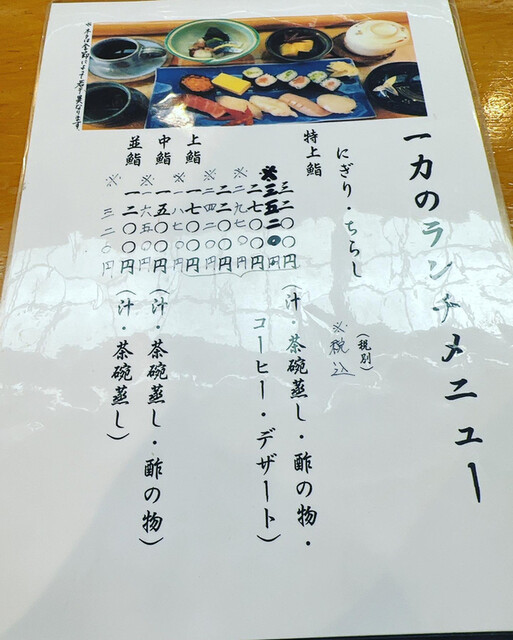 一力のランチメニュー
にぎり・ちらし (税別)
※税込
特上鮨 三二〇〇円 (汁・茶碗蒸し・酢の物・
※三五二〇円 コーヒー・デザート)
二七〇〇円
※二九七〇円
二二〇〇円
※二四二〇円
上鮨 一七〇〇円
※一八七〇円
中鮨 一五〇〇円 (汁・茶碗蒸し・酢の物)
※一六五〇円
並鮨 一二〇〇円 (汁・茶碗蒸し)
※一三二〇円